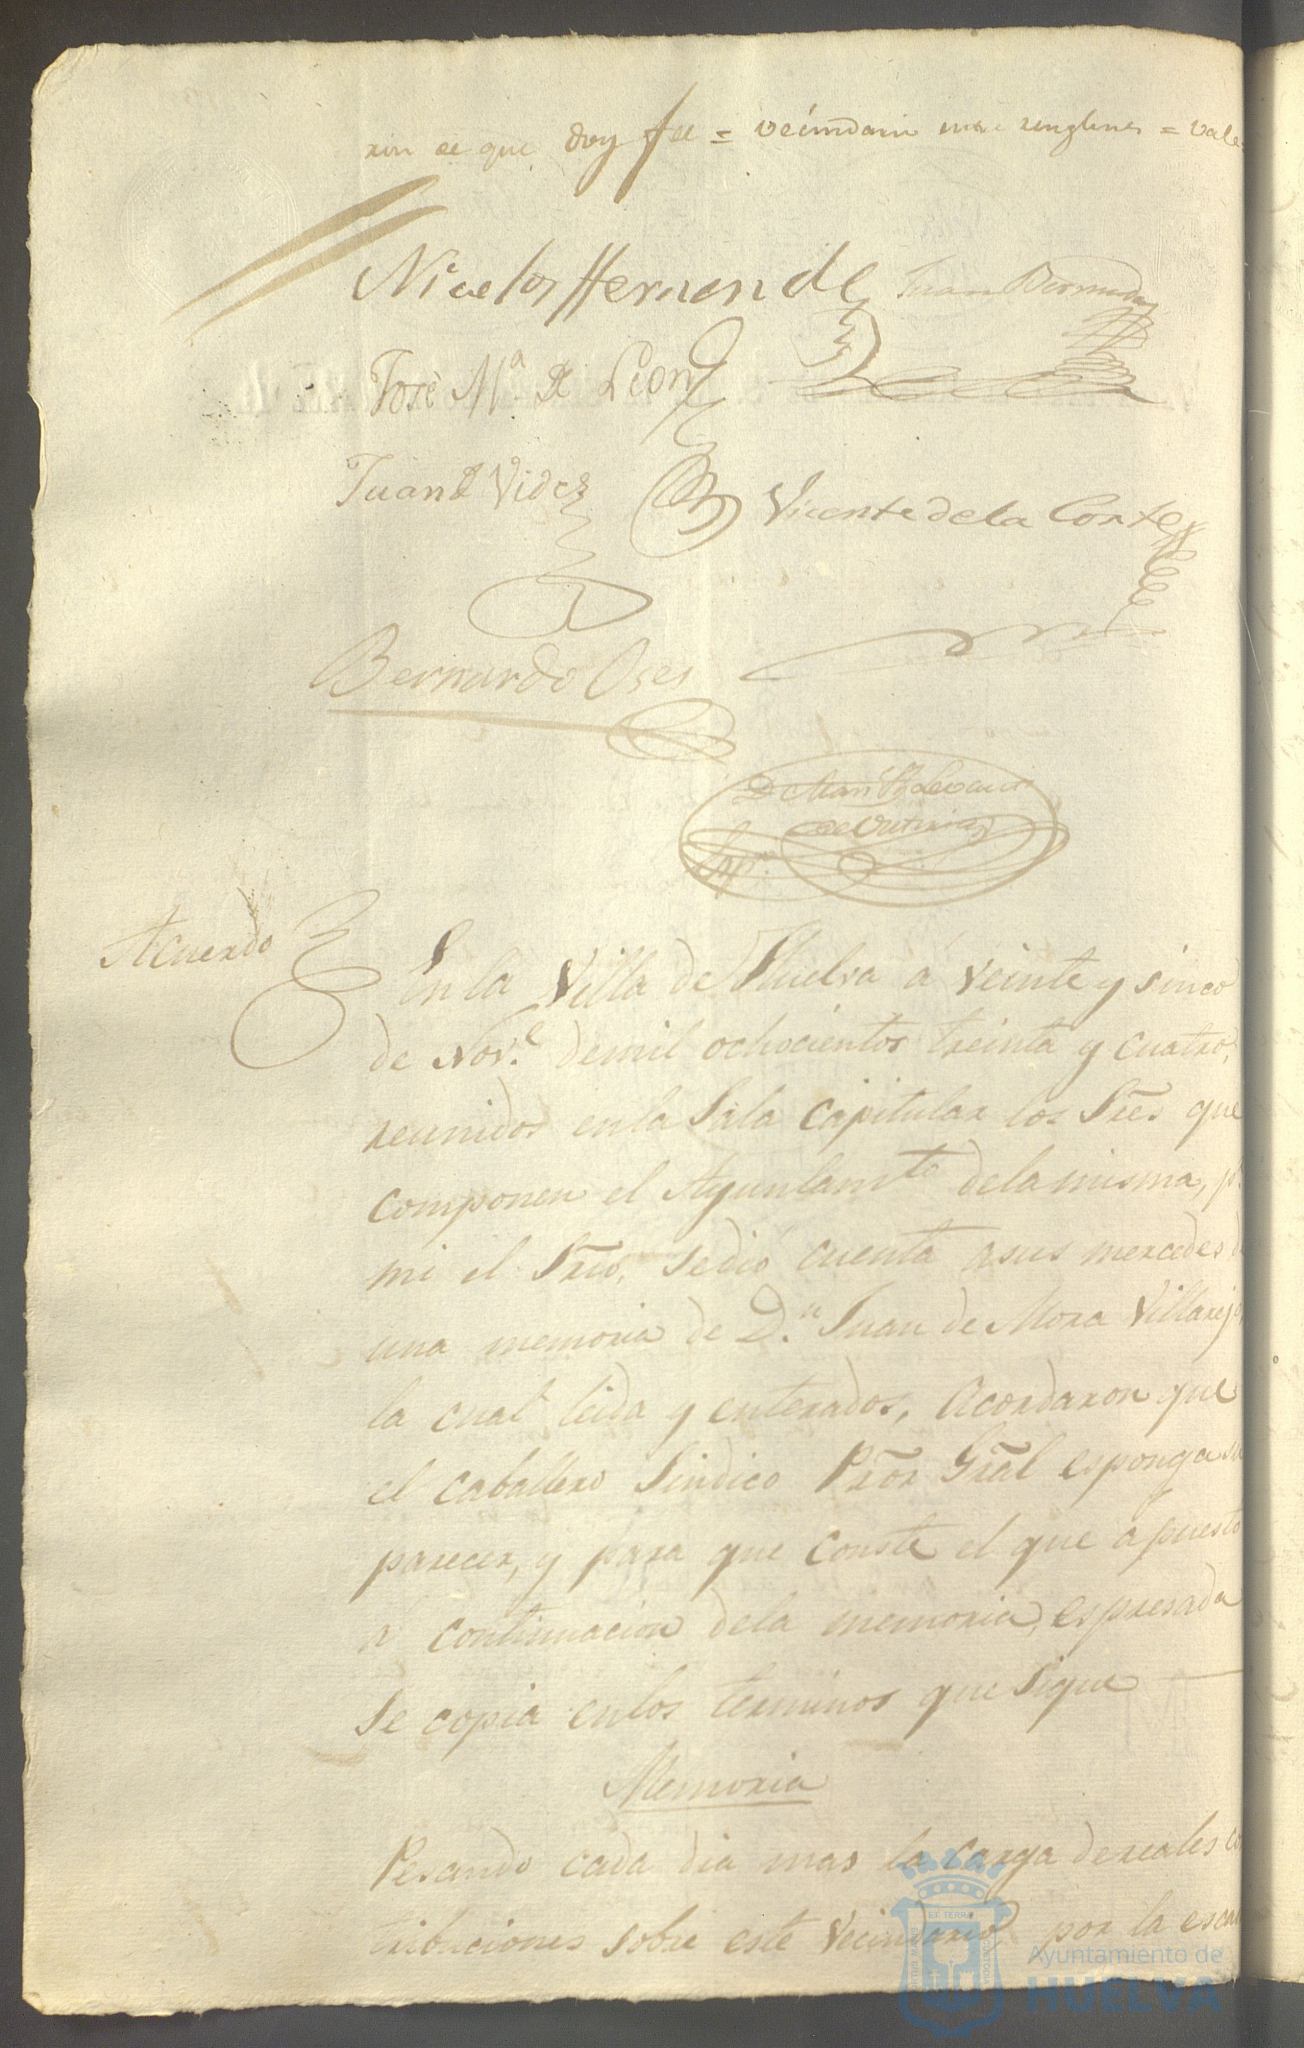 ron de que doy fee = vecindario entre renglones = vale
Nicolas Hernande Juan Bermudez
José M.ª de Leon
Juan de Vides Vicente de la Corte
Bernardo Oses
D. Man.
Acuerdo
En la Villa de Huelva á veinte y sinco
de Nov.e de mil ochocientos treinta y cuatro,
reunidos en la Sala Capitular los Sres que
componen el Ayuntamto de la misma, p.
mi el Srio, se dió cuenta a sus mercedes d
una memoria de D.n Juan de Mora Villarejo,
la cual leida y enterados, Acordaron que
el caballero Sindico Pror Gral esponga su
parecer, y para que conste el que a puesto
á continuacion de la memoria espresada
Se copia en los terminos que Sigue
Memoria
Pesando cada dia mas la carga de reales co
tribuciones sobre este Vecindario por la esca
ET TERRÆ
Ayuntamiento de
HUELVA